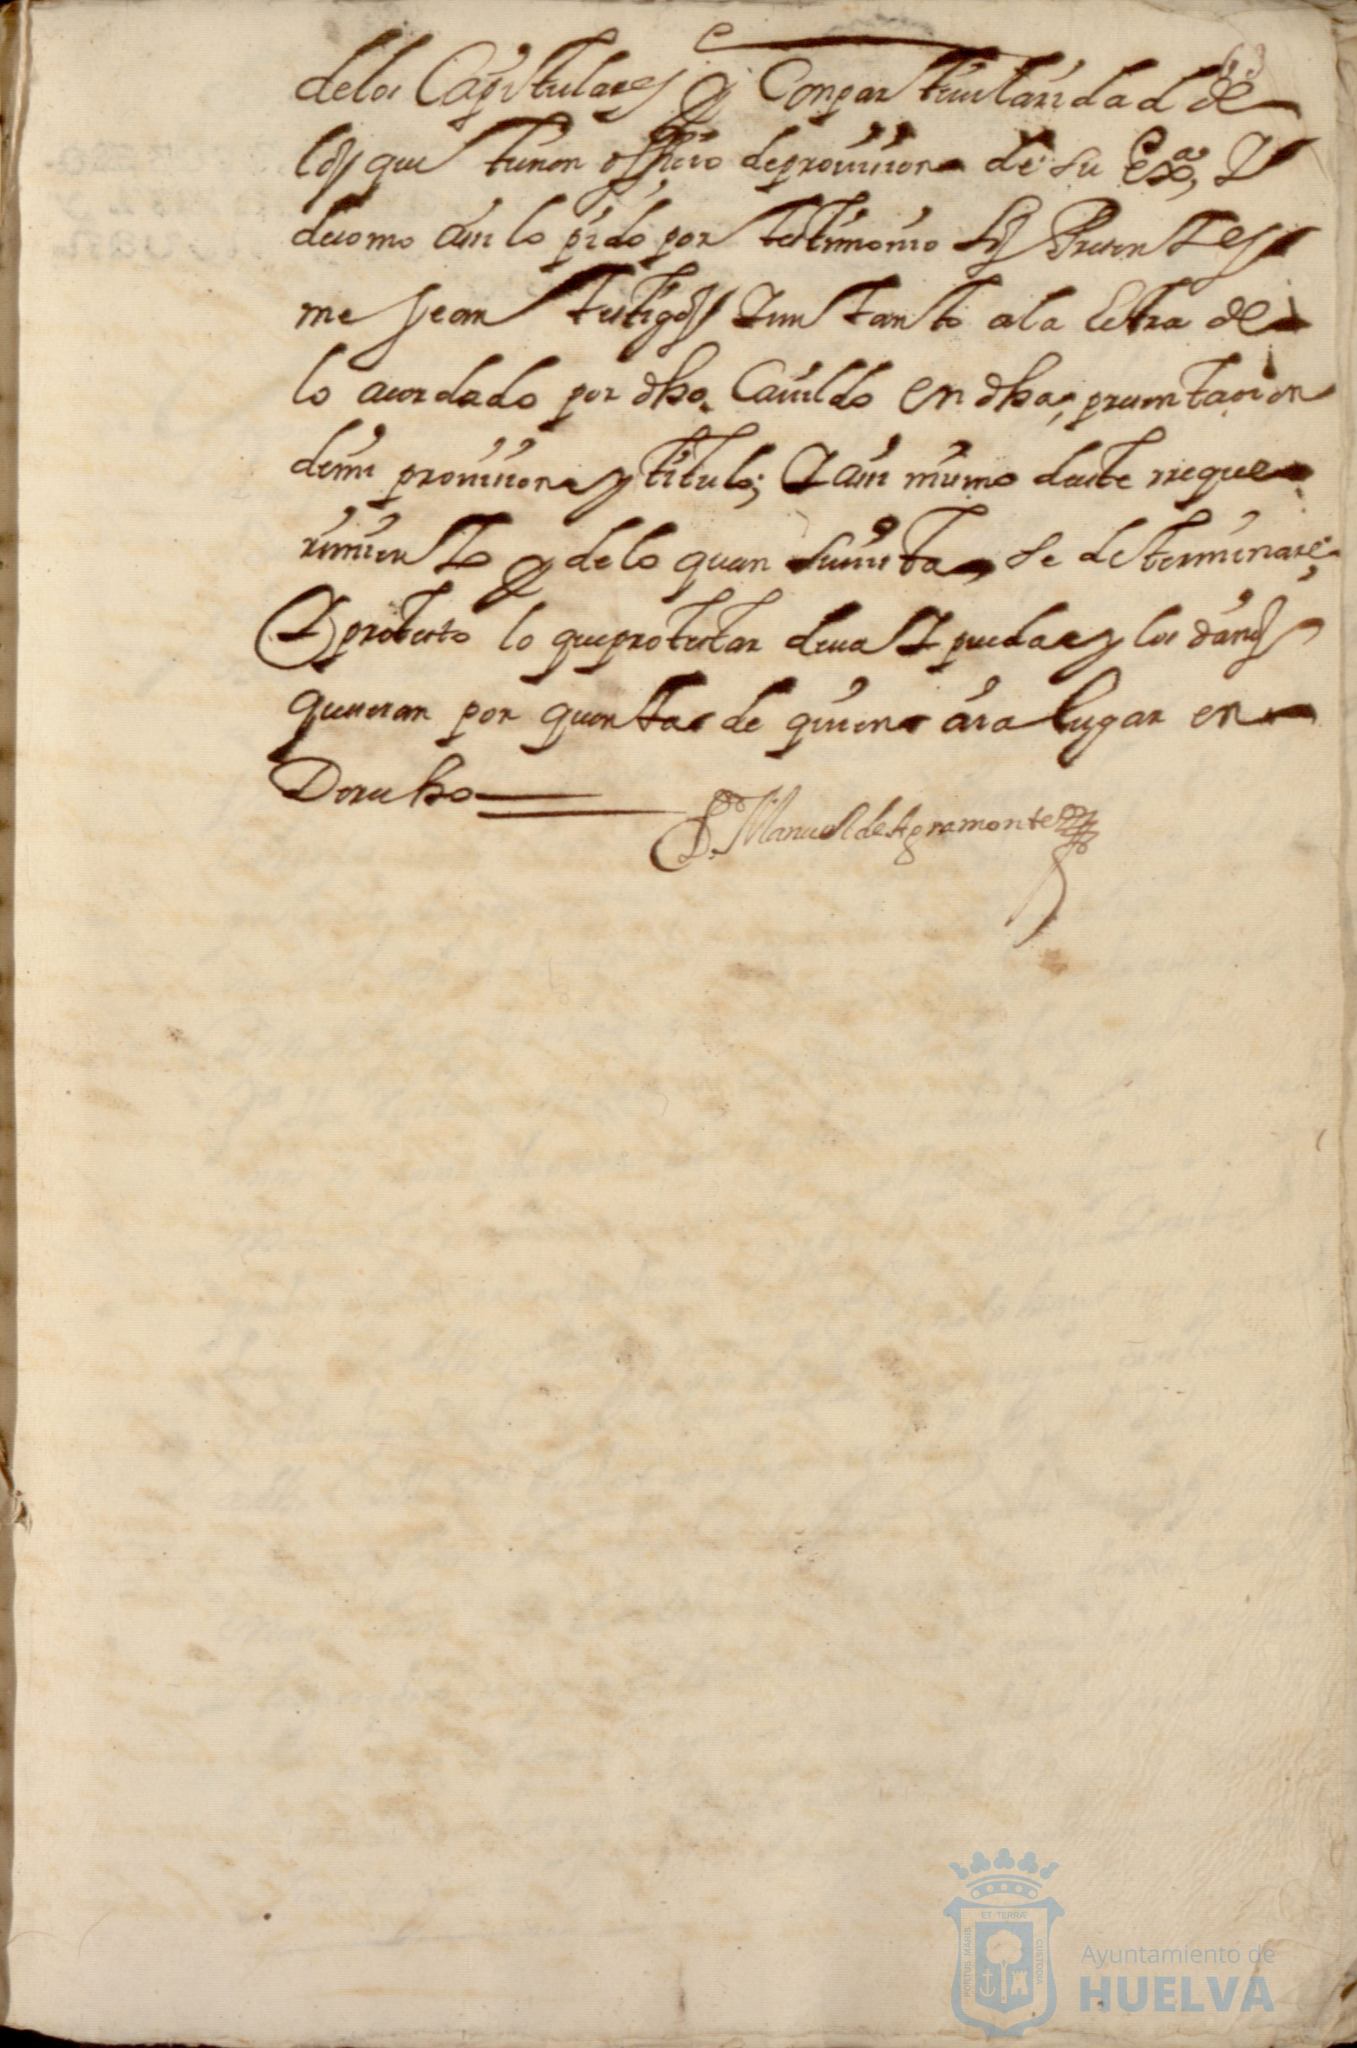 delos Capitulares y Con particularidad de
los que tienen officio de provission de su Exª, Y
de como assi lo pido por testimonio los Presentes
me sean testigos Y un tanto a la letra de
lo acordado por dho. Cavildo en dha, presentacion
de mi provission y titulo; Y assi mismo deste rreque
rimiento y de lo que en su vista se determinare,
Y protesto lo que protestar deva Y pueda y los daños
que vieran por quenta de quien aia lugar en
Derecho
D. Manuel de Agramonte
ET TERRÆ
PORTUS MARIS
CUSTODIA
Ayuntamiento de
HUELVA